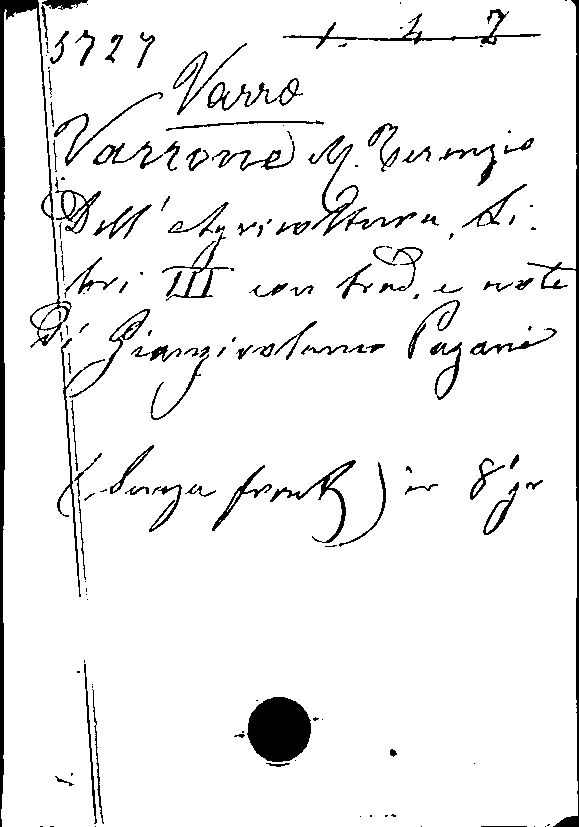 5727 1. 4. 7
Varro
Varrone M. Terenzio
Dell' Agricoltura, Li-
bri III con trad. e note
di Giangirolamo Pagani
(Senza front.) in 8° gr